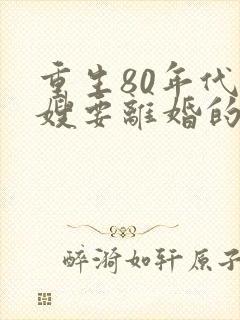 重生80年代
嫂要離婚的
醉漪如轩原子